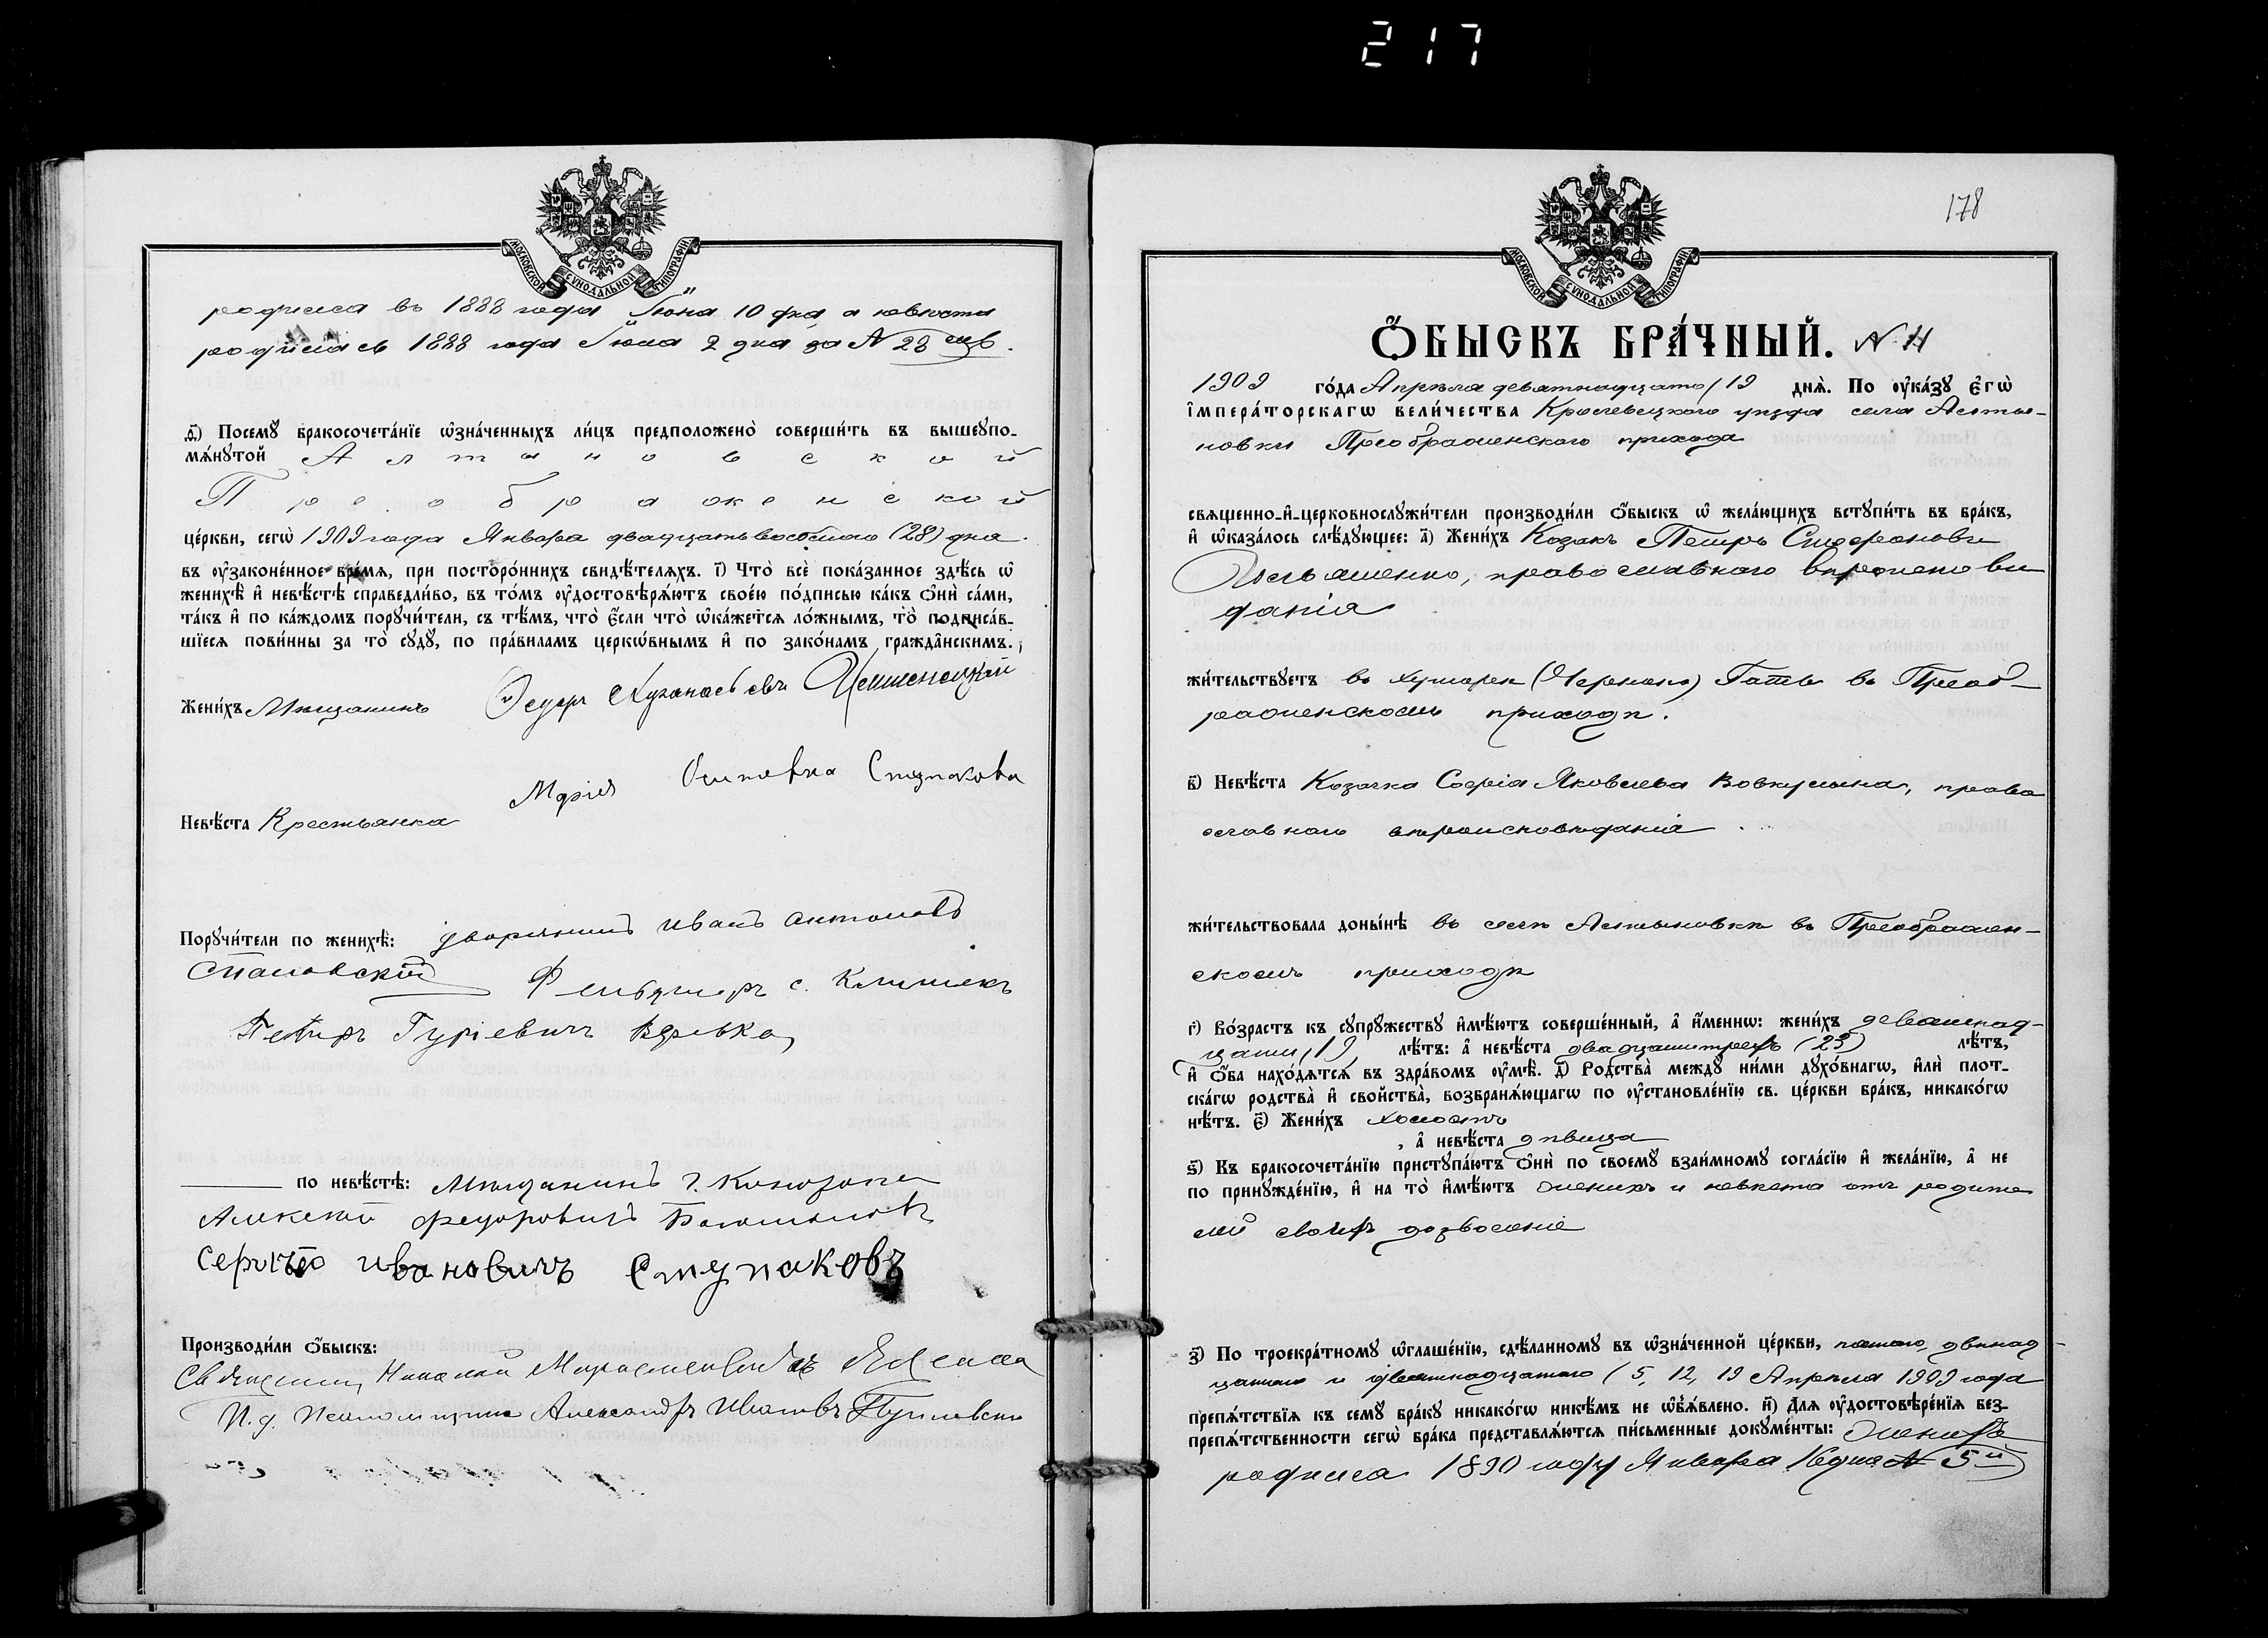 217
МОСКОВСКОЙ СѴНОДАЛЬНОЙ ТИПОГРАФІИ
родился въ 1888 года Іюня 10 дня, а невѣста
родилась 1888 года Іюля 2 дня за № 23
ѳ҃) Посемꙋ бракосочета́нїе ѡ҆зна́ченныхъ ли́цъ предположено̀ соверши́ть въ вышеꙋпо-
мѧ́нꙋтой Алтыновской
Преображенской
це́ркви, сегѡ̀ 1909 года Января двадцать восьмого (28) дня
въ ᲂу҆законе́нное вре́мѧ, при посторо́ннихъ свидѣ́телѧхъ. і҃) Что̀ всѐ пока́занное здѣ́сь ѡ҆
женихѣ̀ и҆ невѣ́стѣ справедли́во, въ то́мъ ᲂу҆достовѣрѧ́ютъ свое́ю по́дписью ка́къ ѻ҆нѝ са́ми,
та́къ и҆ по ка́ждомъ порꙋчи́тели, съ тѣ́мъ, что̀ є҆́сли что̀ ѡ҆ка́жетсѧ ло́жнымъ, то̀ подписа́в-
шїесѧ пови́нны за то̀ сꙋдꙋ̀, по пра́виламъ церкѡ́внымъ и҆ по зако́намъ гражда̑нскимъ.
Жени́хъ Мѣщанинъ Ѳедоръ
Невѣ́ста Крестьянка Марія Осиповна Ступакова
Порꙋчи́тели по женихѣ̀: дворянинъ Иванъ Антоновъ
Фельдшеръ с. Клишекъ
Петръ Гуріевичъ
по невѣ́стѣ: Мѣщанинъ г. Конотопа
Алексей Федоровичъ
Сергѣй Ивановичъ Ступаковъ
Производи́ли ѻ҆́быскъ:
Священникъ Николай
И. д. Псаломщика Александръ Ивановъ
178
МОСКОВСКОЙ СѴНОДАЛЬНОЙ ТИПОГРАФІИ
Ѻ҆́БЫСКЪ БРА́ЧНЫЙ. № 11
1909 го́да Апрѣля девятнадцатого (19 днѧ̀. По ᲂу҆ка́зꙋ є҆гѡ̀
і҆мпера́торскагѡ вели́чества Кролевецкого уѣзда села Алты-
новки Преображенского прихода
свѧщенно-и҆-церковнослꙋжи́тели производи́ли ѻ҆́быскъ ѡ҆ жела́ющихъ встꙋпи́ть въ бра́къ,
и҆ ѡ҆каза́лось слѣ́дꙋющее: а҃) Жени́хъ Козакъ Петръ Стефановъ
православного вѣроисповѣ
данія
жи́тельствꙋетъ въ хуторѣ Гать въ Преоб-
раженскомъ приходѣ.
в҃) Невѣ́ста Козачка Софія Яковлева право
славного вѣроисповѣданія
жи́тельствовала доны́нѣ въ селѣ Алтыновкѣ въ Преображен-
скомъ приходѣ
г҃) Во́зрастъ къ сꙋпрꙋ́жествꙋ и҆мѣ́ютъ соверше́нный, а҆ и҆́меннѡ: жени́хъ девятнад-
цати (19) лѣ́тъ: а҆ невѣ́ста двадцатитрехъ (23) лѣ́тъ,
и҆ ѻ҆́ба нахо́дѧтсѧ въ здра́вомъ ᲂу҆мѣ̀. д҃) Родства̀ междꙋ̀ ни́ми дꙋхо́внагѡ, и҆лѝ плот-
ска́гѡ родства̀ и҆ свойства̀, возбранѧ́ющагѡ по ᲂу҆становле́нїю св. це́ркви бра́къ, никако́гѡ
нѣ́тъ. є҃) Жени́хъ холостъ
, а҆ невѣ́ста дѣвица
ѕ҃) Къ бракосочета́нїю пристꙋпа́ютъ ѻ҆нѝ по своемꙋ̀ взаи́мномꙋ согла́сїю и҆ жела́нїю, а҆ не
по принꙋжде́нїю, и҆ на то̀ и҆мѣ́ютъ Женихъ и невѣста отъ родите
лей своихъ дозволеніе
з҃) По троекра́тномꙋ ѡ҆глаше́нїю, сдѣ́ланномꙋ въ ѡ҆зна́ченной це́ркви, пятого, двенад-
цатого и девятнадцатого (5, 12, 19 Апрѣля 1909 года
препѧ́тствїѧ къ семꙋ̀ бра́кꙋ никако́гѡ никѣ́мъ не ѡ҆б̾ѧ́влено. и҃) Длѧ ᲂу҆достовѣре́нїѧ без-
препѧ́тственности сегѡ̀ бра́ка представлѧ́ютсѧ пи́сьменные докꙋме́нты: Женихъ
родился 1890 году Января 16 дня № 5й